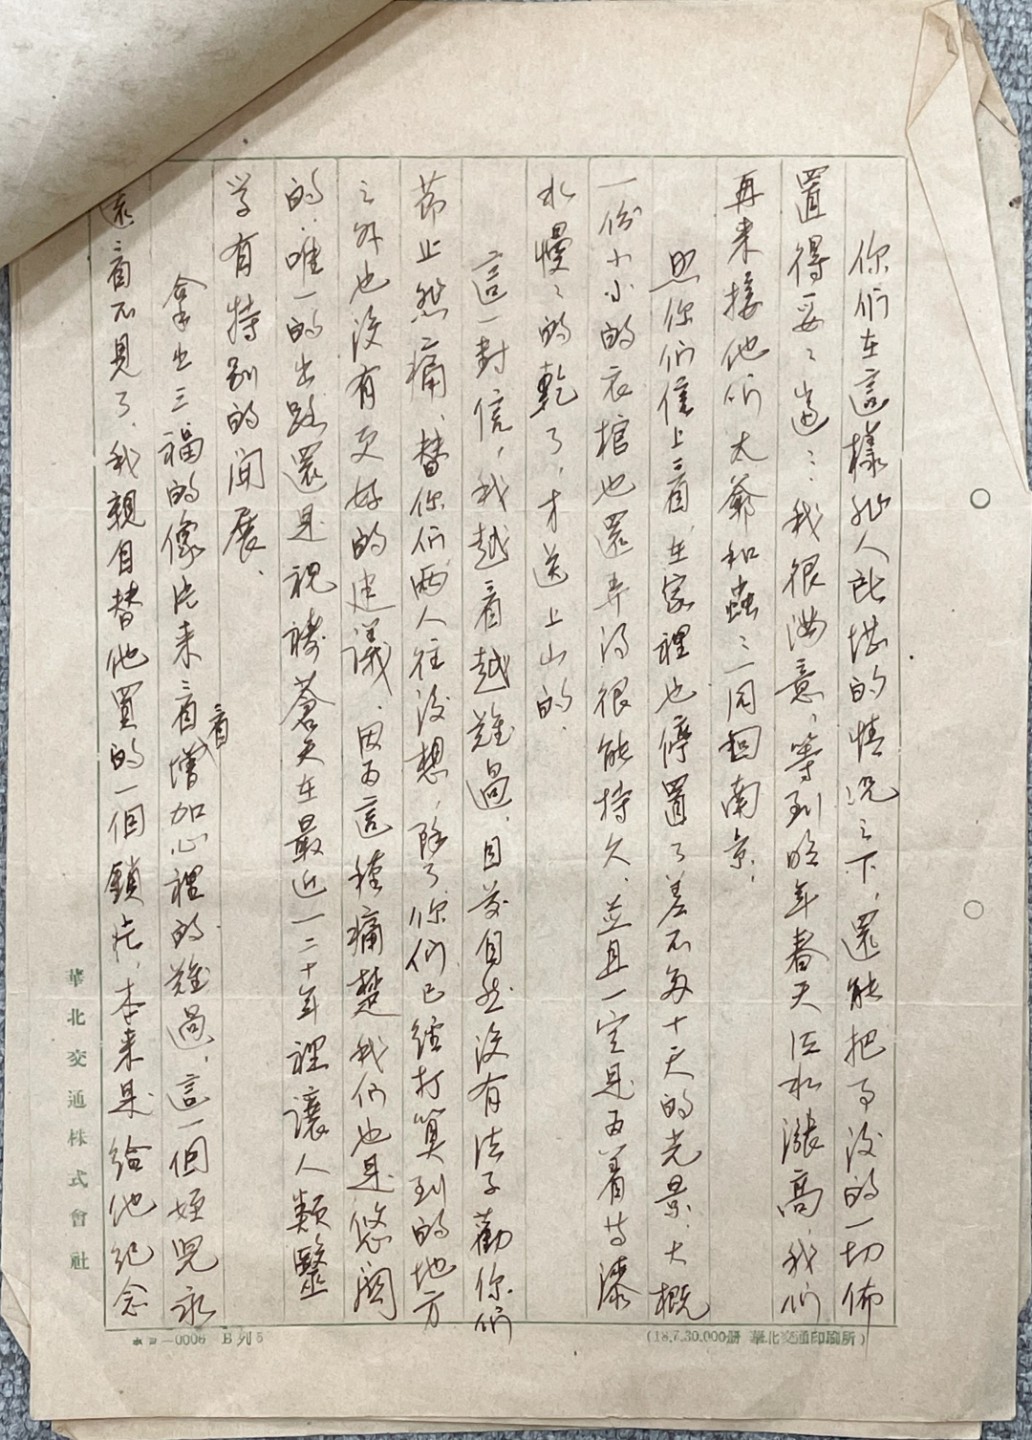 你们在這樣非人所堪的情况之下，還能把事後的一切佈
置得妥〻當〻我很满意，等到明年春天江水漲高，我们
再来接他们大爺和蟲〻一同囬南京，
照你们信上看，在家裡也停置了差不多十天的光景，大概
一份小小的衣棺也還弄得很能持久，並且一定是为着等漆
水慢〻的乾了，才送上山的．
這一封信，我越看越難過，目前自然没有法子勸你们
節止悲痛，替你们两人往後想，除了你们已經打算到的地方
之外也没有更好的建議，因为這種痛楚我们也是悠関
的，唯一的出路還是祝禱蒼天在最近一二十年裡讓人類醫
学有特别的開展．
拿出三福的像片来看看增加心裡的難過，這一個姪兒永
遠看不見了，我親自替他買的一個鎖片，本来是給他紀念
華北交通株式會社
(18.7.30.000册 華北交通印刷所)
—0006 B列5